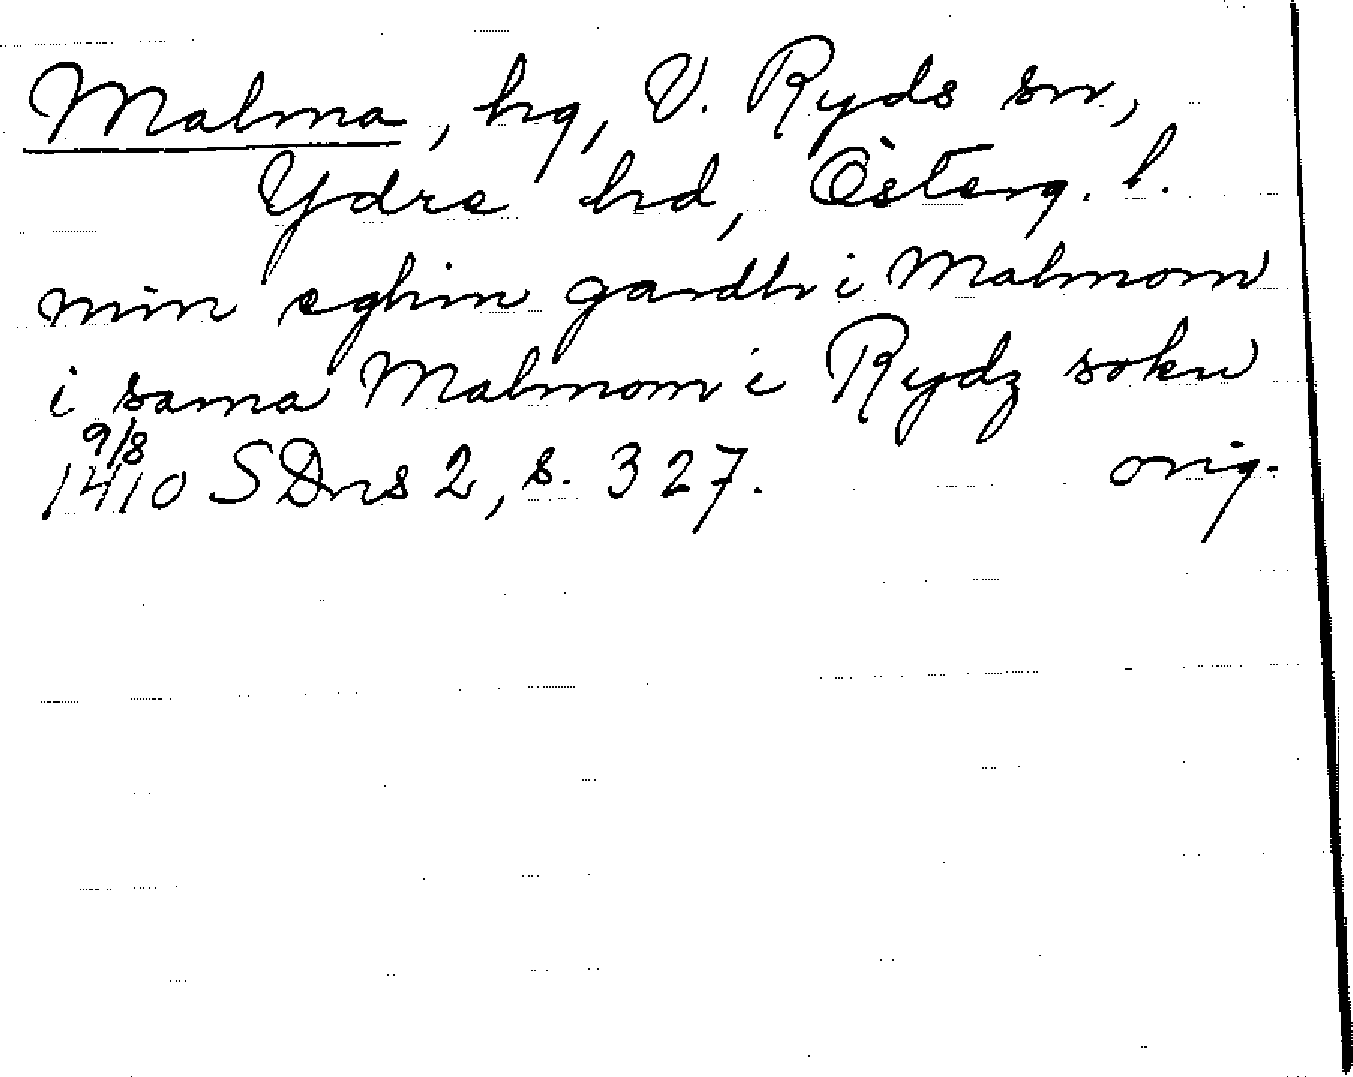 Malma, hg, V. Ryds sn,
Ydre hd, Österg. l.
min eghin gardh i Malmom
i sama Malmom i Rydz sokn
9/8
1410 SDns 2, s. 327. orig.